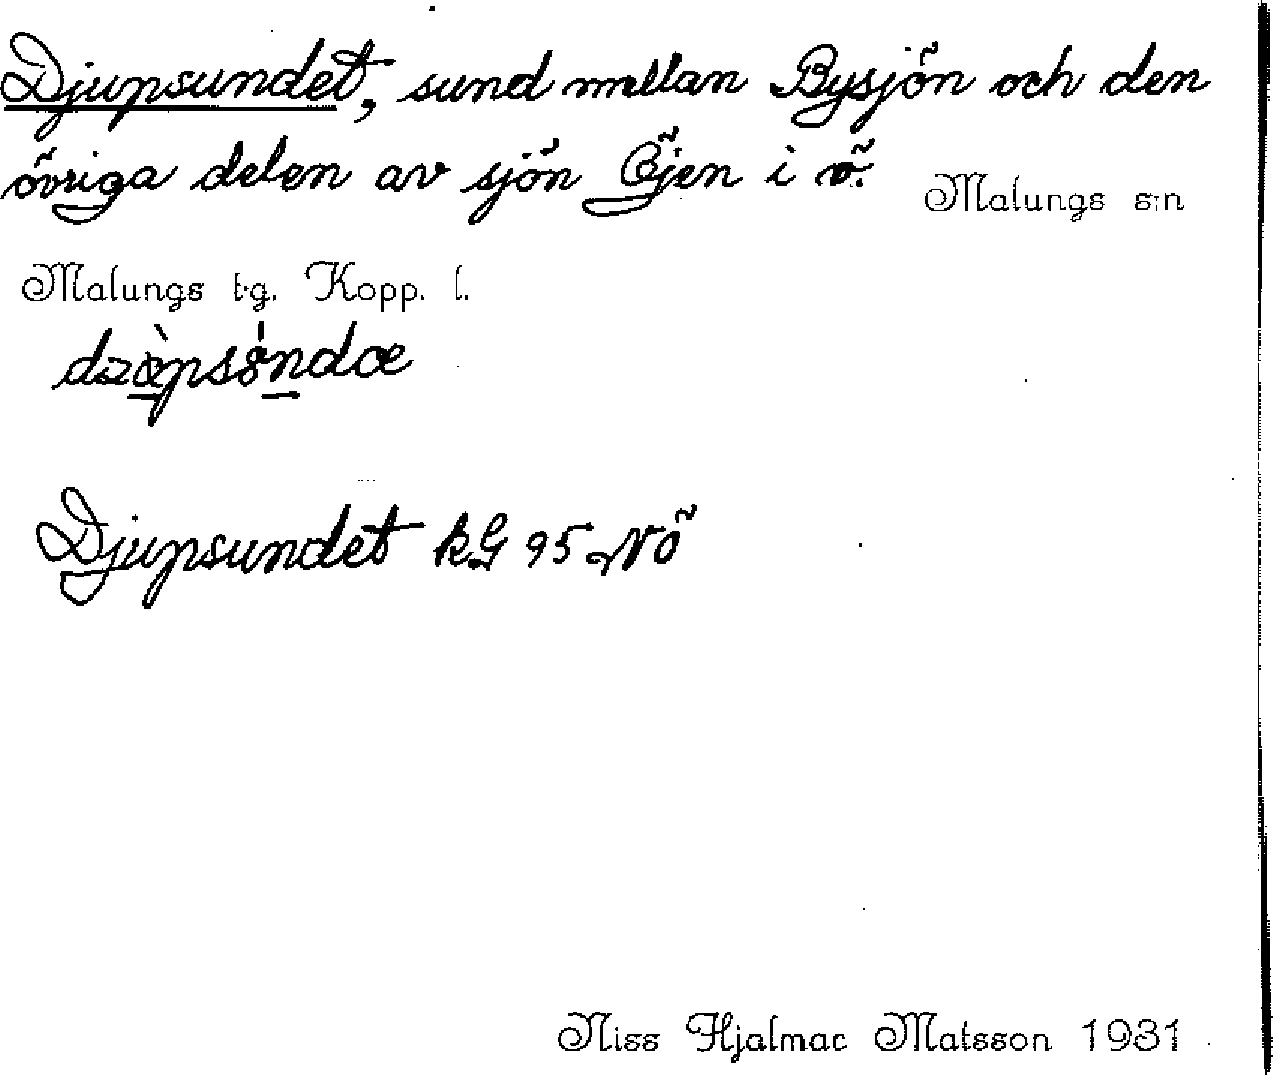 Djupsundet, sund mellan Bysjön och den
övriga delen av sjön Öjen i ö.
Malungs s:n
Malungs t.g. Kopp. l.
Djupsundet kG 95 NÖ
Niss Hjalmar Matsson 1931